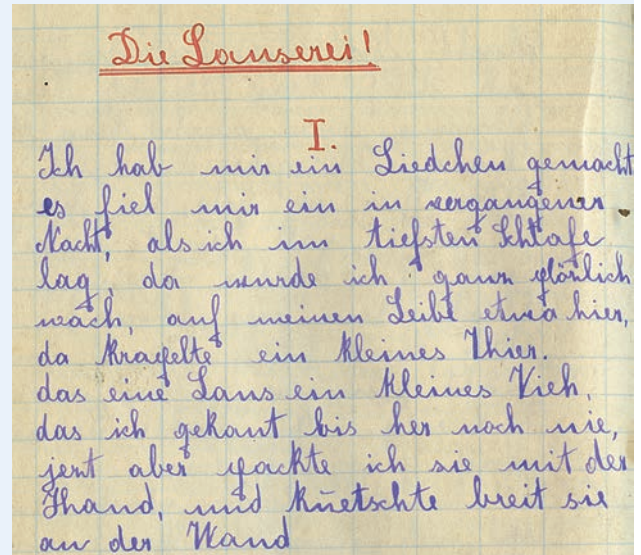 Die Lauserei!
I.
Ich hab mir ein Liedchen gemacht
es fiel mir ein in vergangener
Nacht, als ich im tiefsten Schlafe
lag, da wurde ich ganz plözlich
wach, auf meinen Leibe etwa hier,
da krapelte ein kleines Thier.
das eine Laus ein kleines Vieh,
das ich gekant bis her noch nie,
jezt aber packte ich sie mit der
Hand, und knetschte breit sie
an der Wand